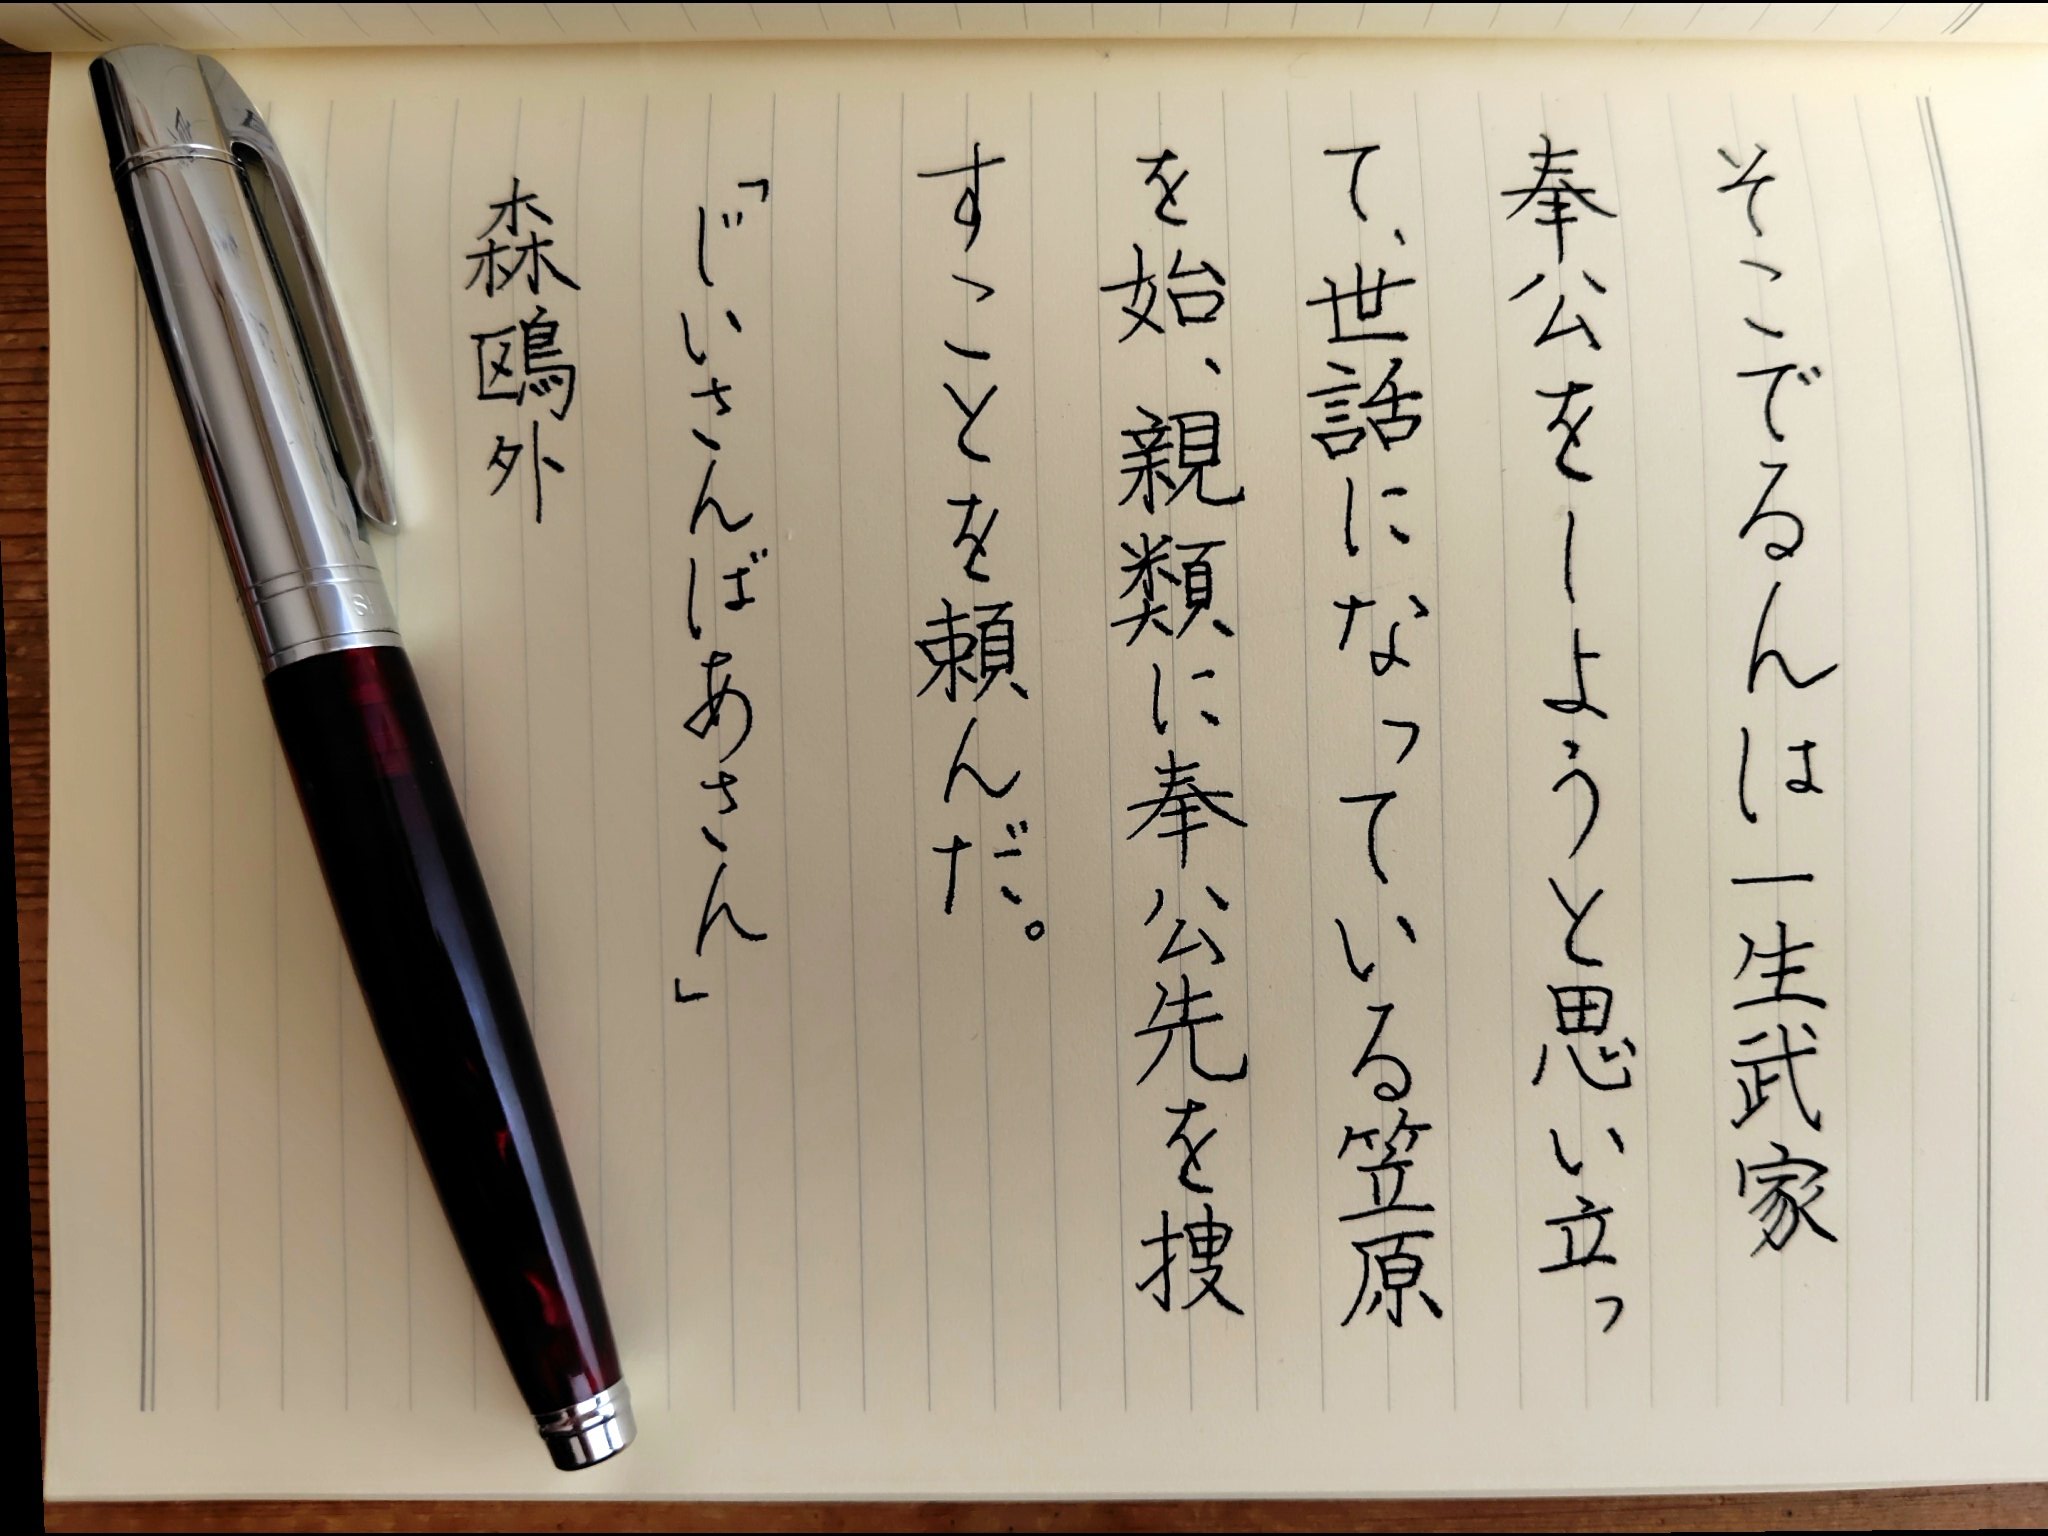 そこでるんは一生武家
奉公をしようと思い立っ
て、世話になっている笠原
を始、親類に奉公先を捜
すことを頼んだ。
「じいさんばあさん」
森鴎外